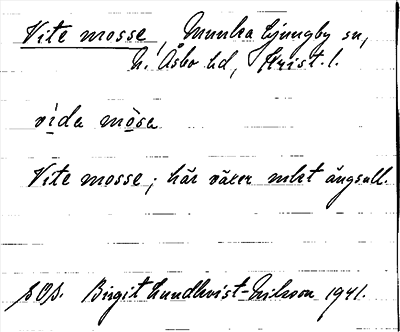 Vite mosse, Munka Ljungby sn,
N. Åsbo hd, Krist. l.
vida mòsa
Vite mosse; här växer mkt ängsull.
SOS. Birgit Lundkvist-Nilsson 1941.